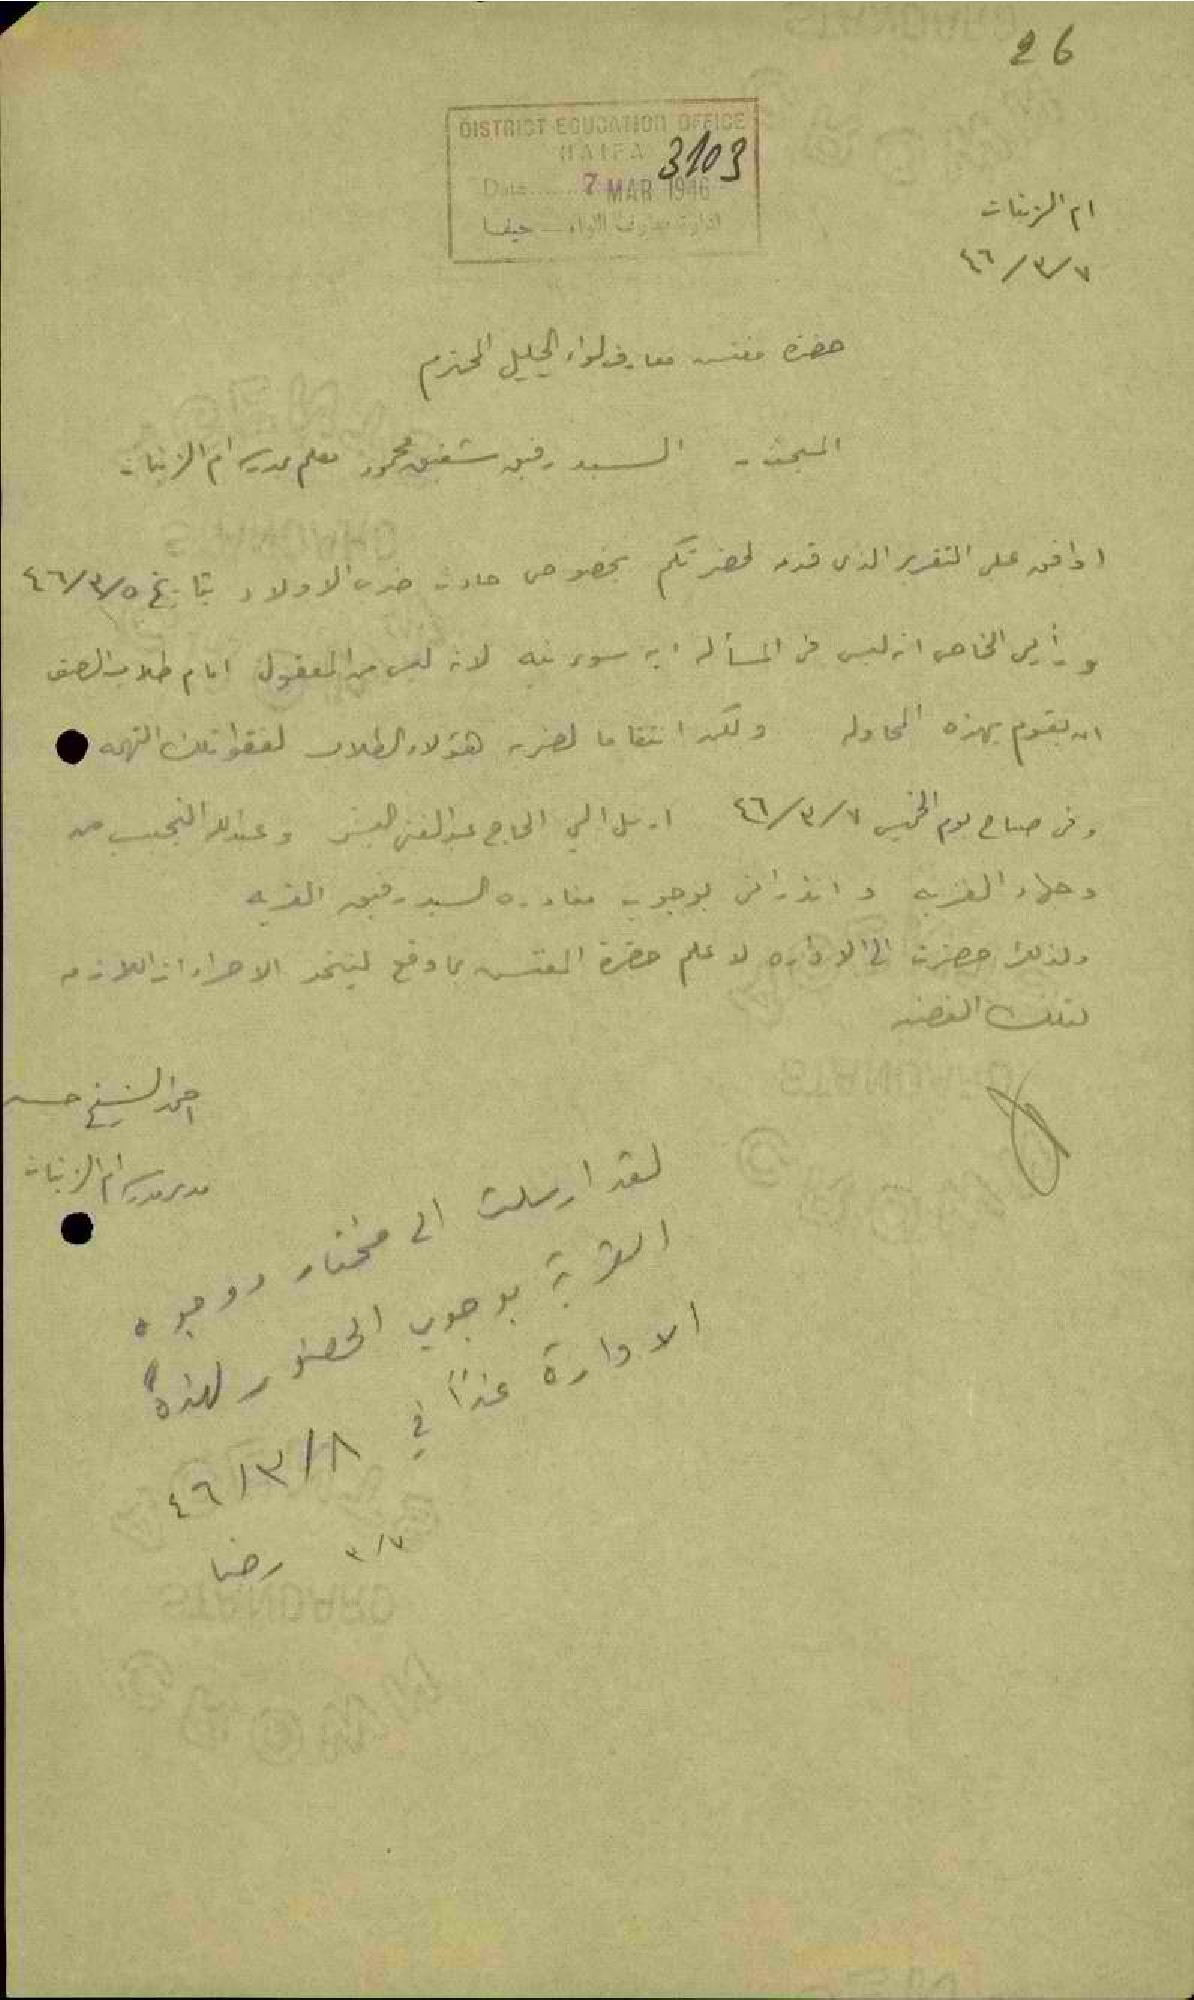 26
DISTRICT EDUCATION OFFICE
HAIFA
3103
Date........ 7 MAR 1946
ادارة معارف اللواء — حيفا
ام الزينات
٤٦/٣/٧
حضرة مفتش معارف لواء الجليل المحترم
المبحث - السيد رفيق شفيق محمود معلم مدرسة ام الزينات
اوافق على التقرير الذي قدم لحضرتكم بخصوص حادث ضرب الاولاد بتاريخ ٤٦/٣/٥
ورأيي الخاص انه ليس في المسألة اية سوء نيه لانه ليس من المعقول امام طلاب الصف
ان يقوم بهذه المحاوله ولكن انتقاما لضربه هؤلاء الطلاب لفقوا تلك التهمه
وفي صباح يوم الخميس ٤٦/٣/٧ ارسل الي الحاج عبد الغني وعبدالله النجيب من
وجهاء القريه و انذراني بوجوب مغادرة السيد رفيق القريه
ولذلك حضرت الى الاداره لاعلم حضرة المفتش بما وقع ليتخذ الاجراءات اللازمه
لتلك القضيه
احمد الشيخ حسن
مدير مدرسة ام الزينات
لقد ارسلت الى مختار ووجوه
القرية بوجوب الحضور لهذه
الادارة غداً في
٤٦/٣/٨
٣/٧ رضا
ORAONATS